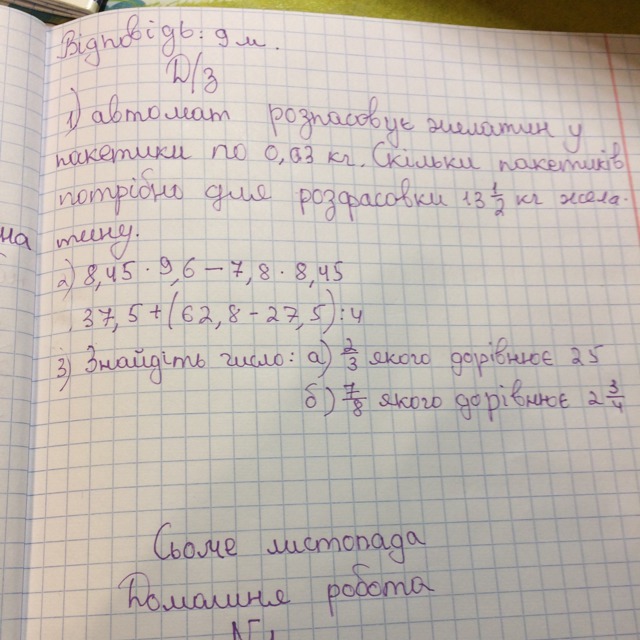 Відповідь: 9 м.
Д/З
1) автомат розпасовує желатин у
пакетики по 0,03 кг. Скільки пакетиків
потрібно для розфасовки 13 1/2 кг жела-
на тину.
2) 8,45 · 9,6 – 7,8 · 8,45
37,5 + (62,8 – 27,5) : 4
3) Знайдіть число: а) 2/3 якого дорівнює 25
б) 7/8 якого дорівнює 2 3/4
Сьоме листопада
Домашня робота
№1